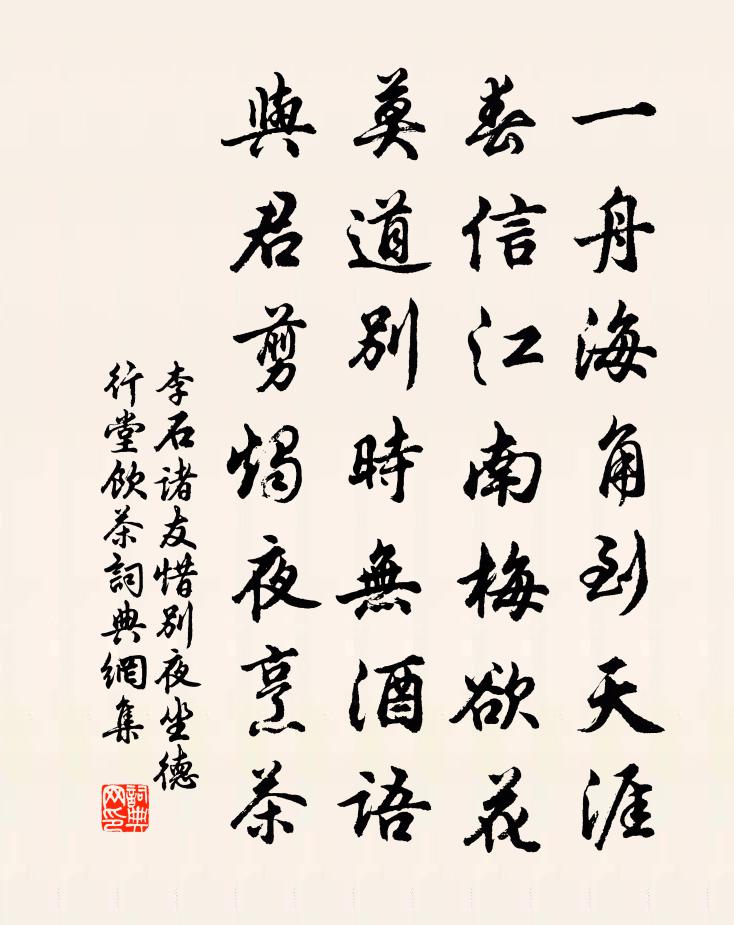 一舟海角到天涯
春信江南梅欲花
莫道別時無酒語
與君剪燭夜烹茶
李石諸友惜別夜坐德
行堂飲茶詞典網集
詞典
网印